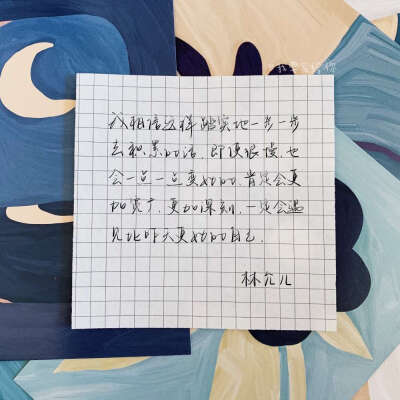 我相信这样踏实地一步一步
去积累的话，即使很慢，也
会一点一点变好的，肯定会更
加宽广，更加深刻，一定会遇
见比昨天更好的自己．
林允儿